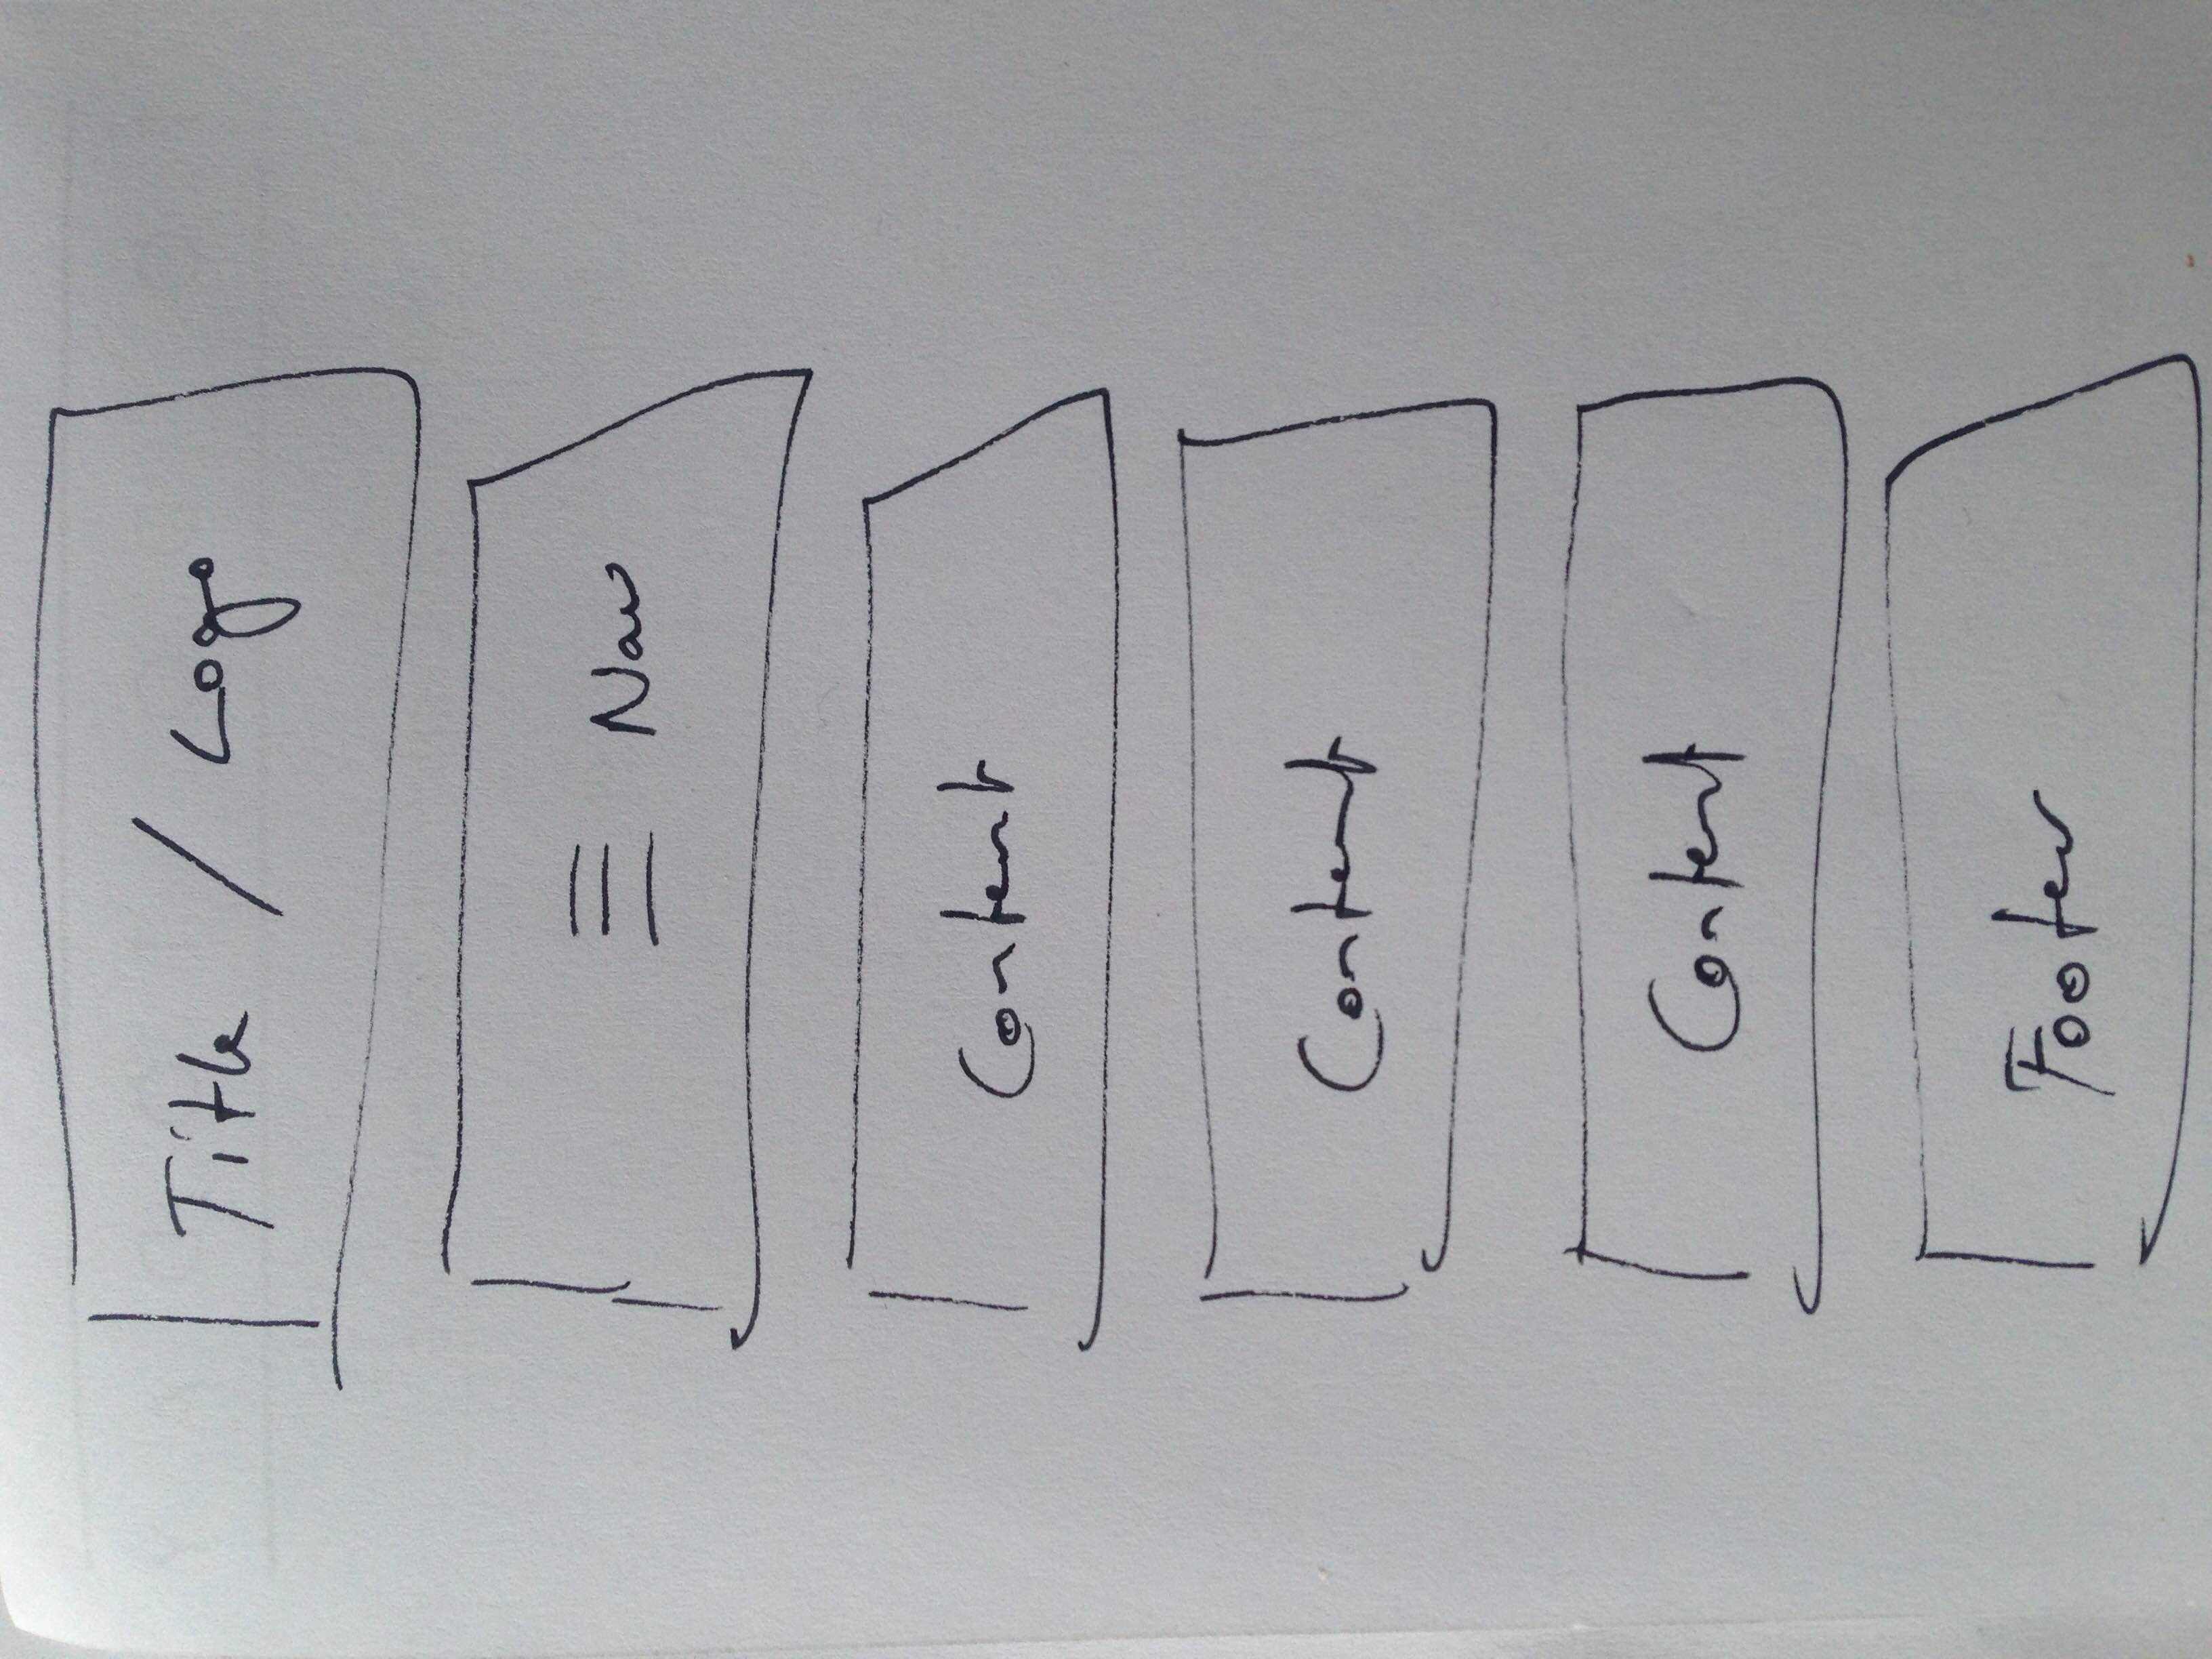 Title / Logo
≡ Nav
Content
Content
Content
Footer